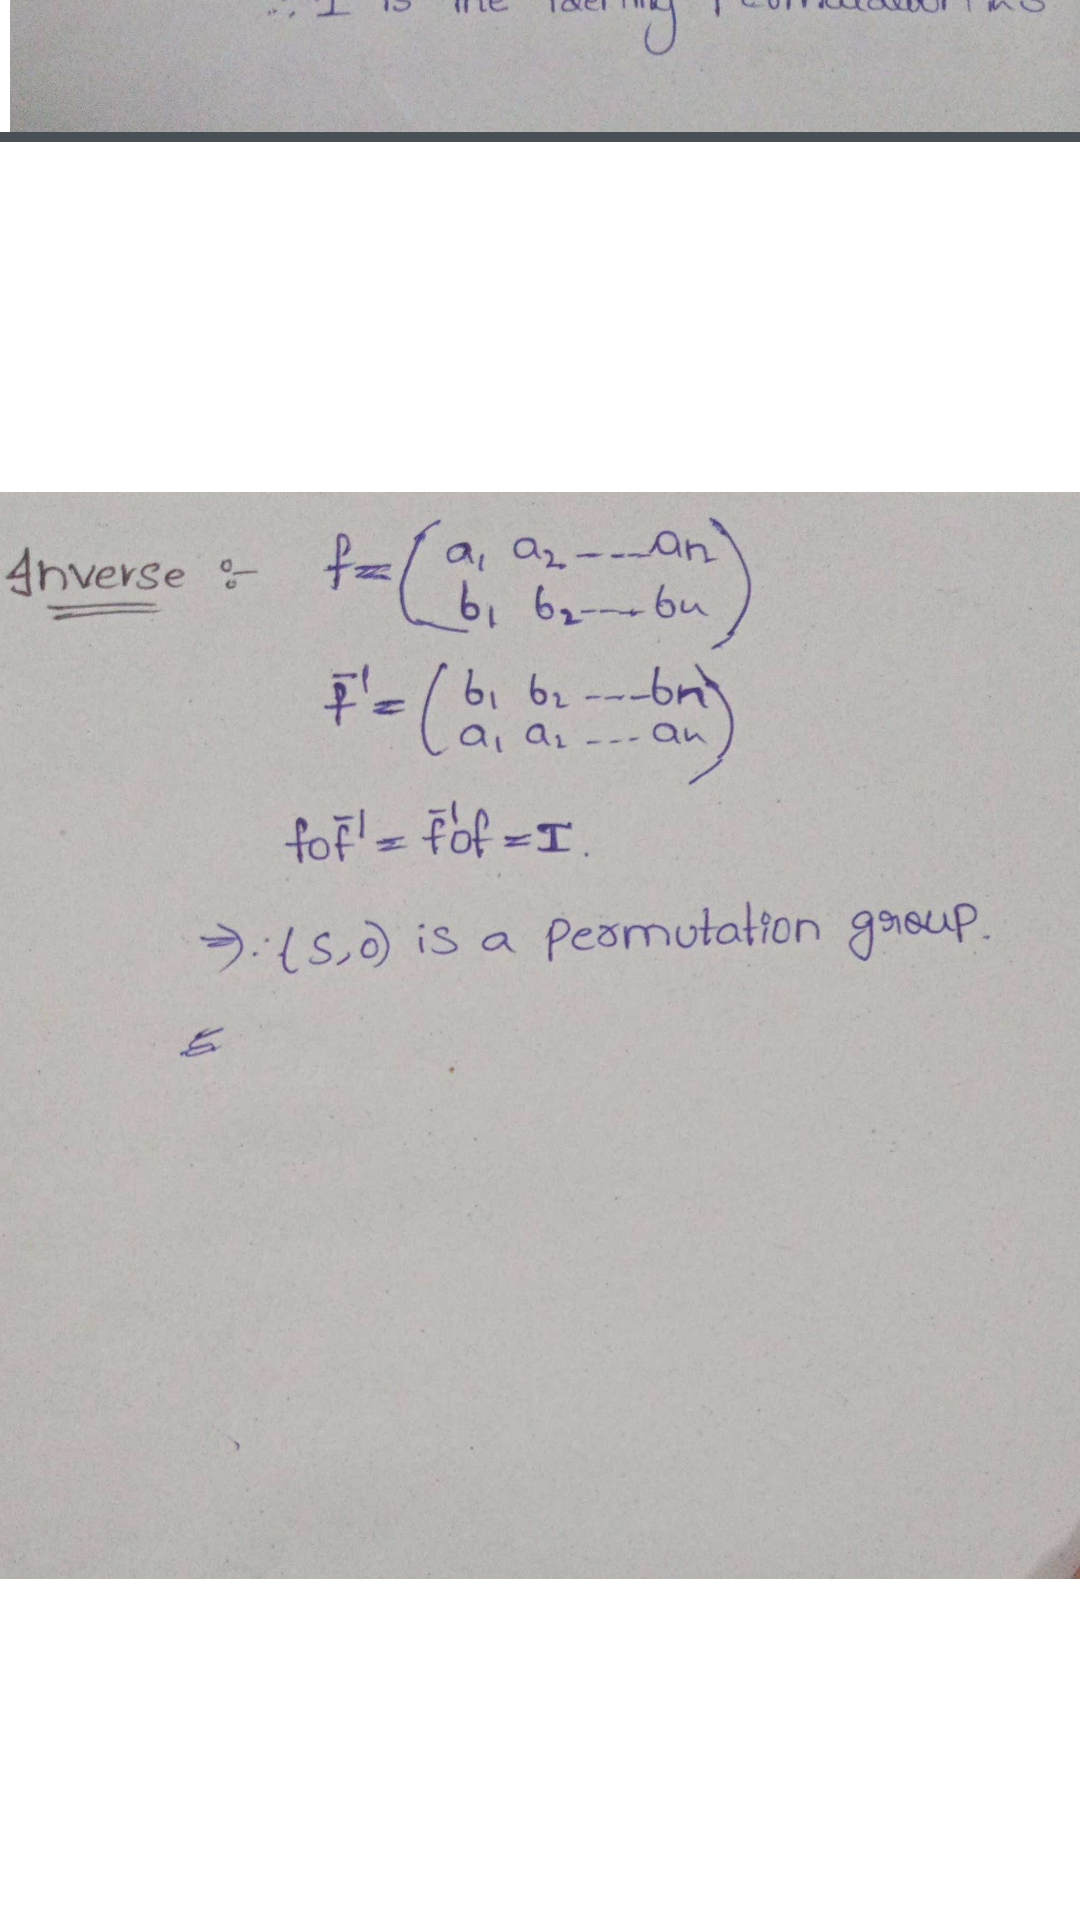 ∴ I is the
Inverse :- f = ( a₁ a₂ ---- an
b₁ b₂ ---- bn )
f⁻¹ = ( b₁ b₂ ---- bn
a₁ a₂ --- an )
fof⁻¹ = f⁻¹of = I.
⇒ ∴ (S,o) is a permutation group.